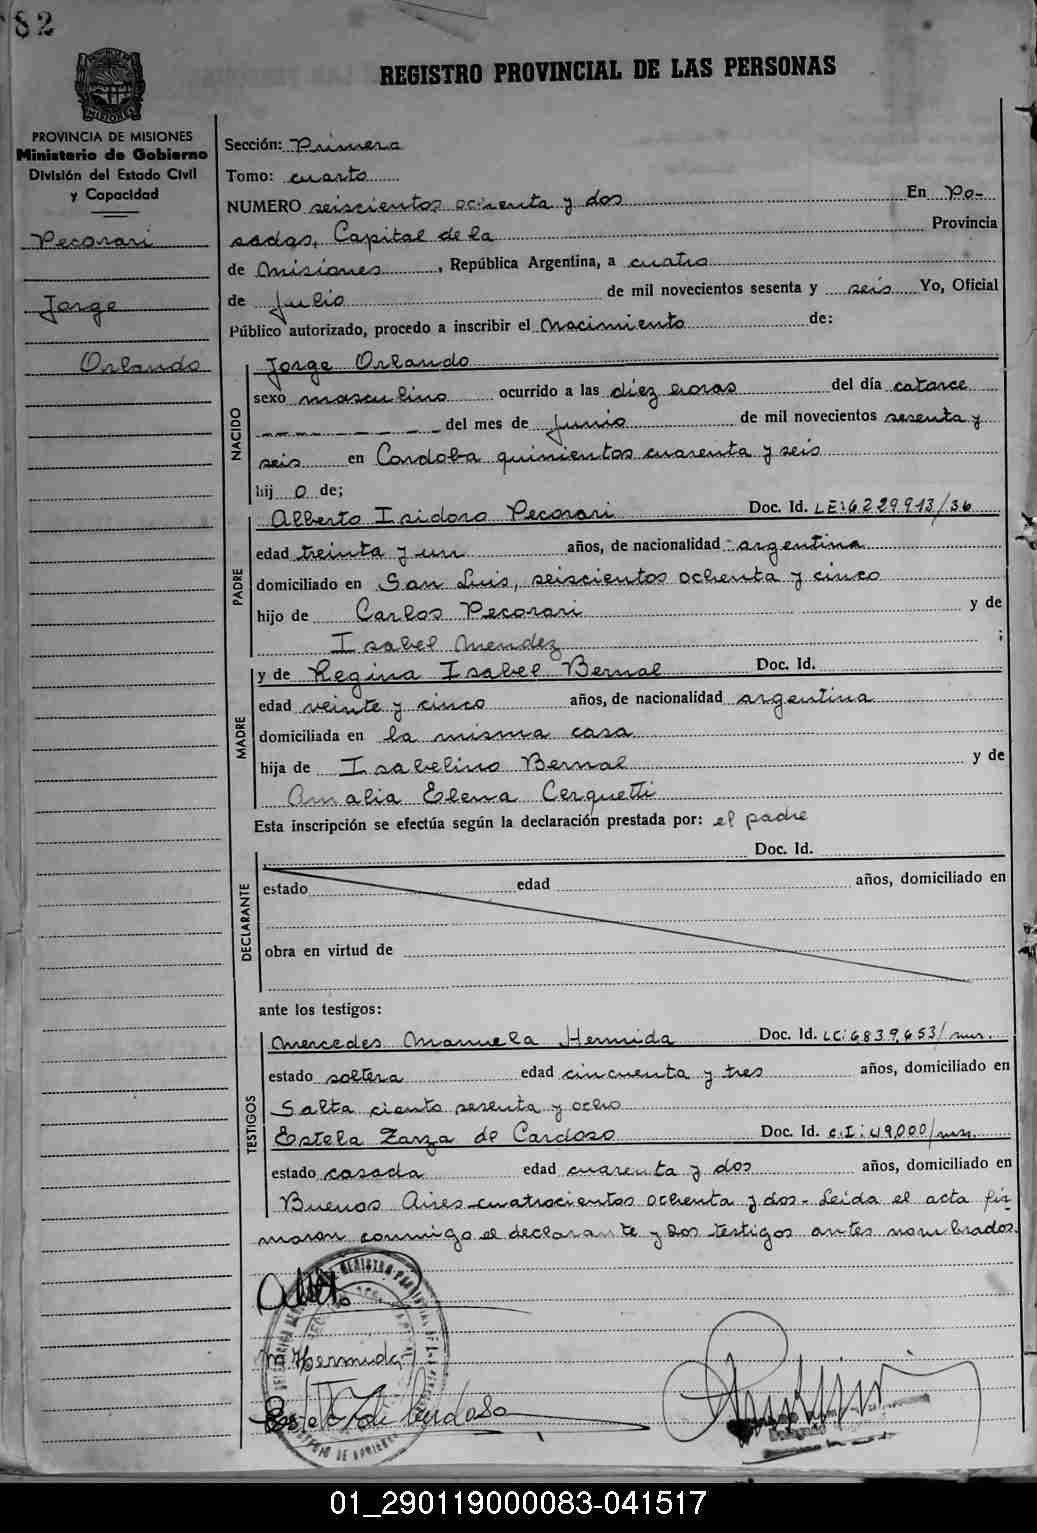 82
REGISTRO PROVINCIAL DE LAS PERSONAS
PROVINCIA DE MISIONES
Ministerio de Gobierno
División del Estado Civil
y Capacidad
Pecorari
Jorge
Orlando
Sección: Primera
Tomo: cuarto
NUMERO seiscientos ochenta y dos En Po-
sadas, Capital de la Provincia
de Misiones, República Argentina, a cuatro
de Julio de mil novecientos sesenta y seis Yo, Oficial
Público autorizado, procedo a inscribir el Nacimiento de:
NACIDO
Jorge Orlando
sexo masculino ocurrido a las diez horas del día catorce
del mes de Junio de mil novecientos sesenta y
seis en Cordoba quinientos cuarenta y seis
hij o de;
PADRE
Alberto Isidoro Pecorari Doc. Id. LE:6229913/36
edad treinta y un años, de nacionalidad argentina
domiciliado en San Luis, seiscientos ochenta y cinco
hijo de Carlos Pecorari y de
Isabel Mendez ;
MADRE
y de Regina Isabel Bernal Doc. Id.
edad veinte y cinco años, de nacionalidad argentina
domiciliada en la misma casa
hija de Isabelino Bernal y de
Amalia Elena Cerquetti
Esta inscripción se efectúa según la declaración prestada por: el padre
DECLARANTE
Doc. Id.
estado edad años, domiciliado en
obra en virtud de
ante los testigos:
TESTIGOS
Mercedes Manuela Hermida Doc. Id. LC:6839,653/
estado soltera edad cincuenta y tres años, domiciliado en
Salta ciento sesenta y ocho
Estela Zarza de Cardozo Doc. Id. C.I: 49,000/
estado casada edad cuarenta y dos años, domiciliado en
Buenos Aires cuatrocientos ochenta y dos- Leida el acta fir
maron conmigo el declarante y los testigos antes nombrados.
M Hermida
Estela Z de Cardozo
01_290119000083-041517